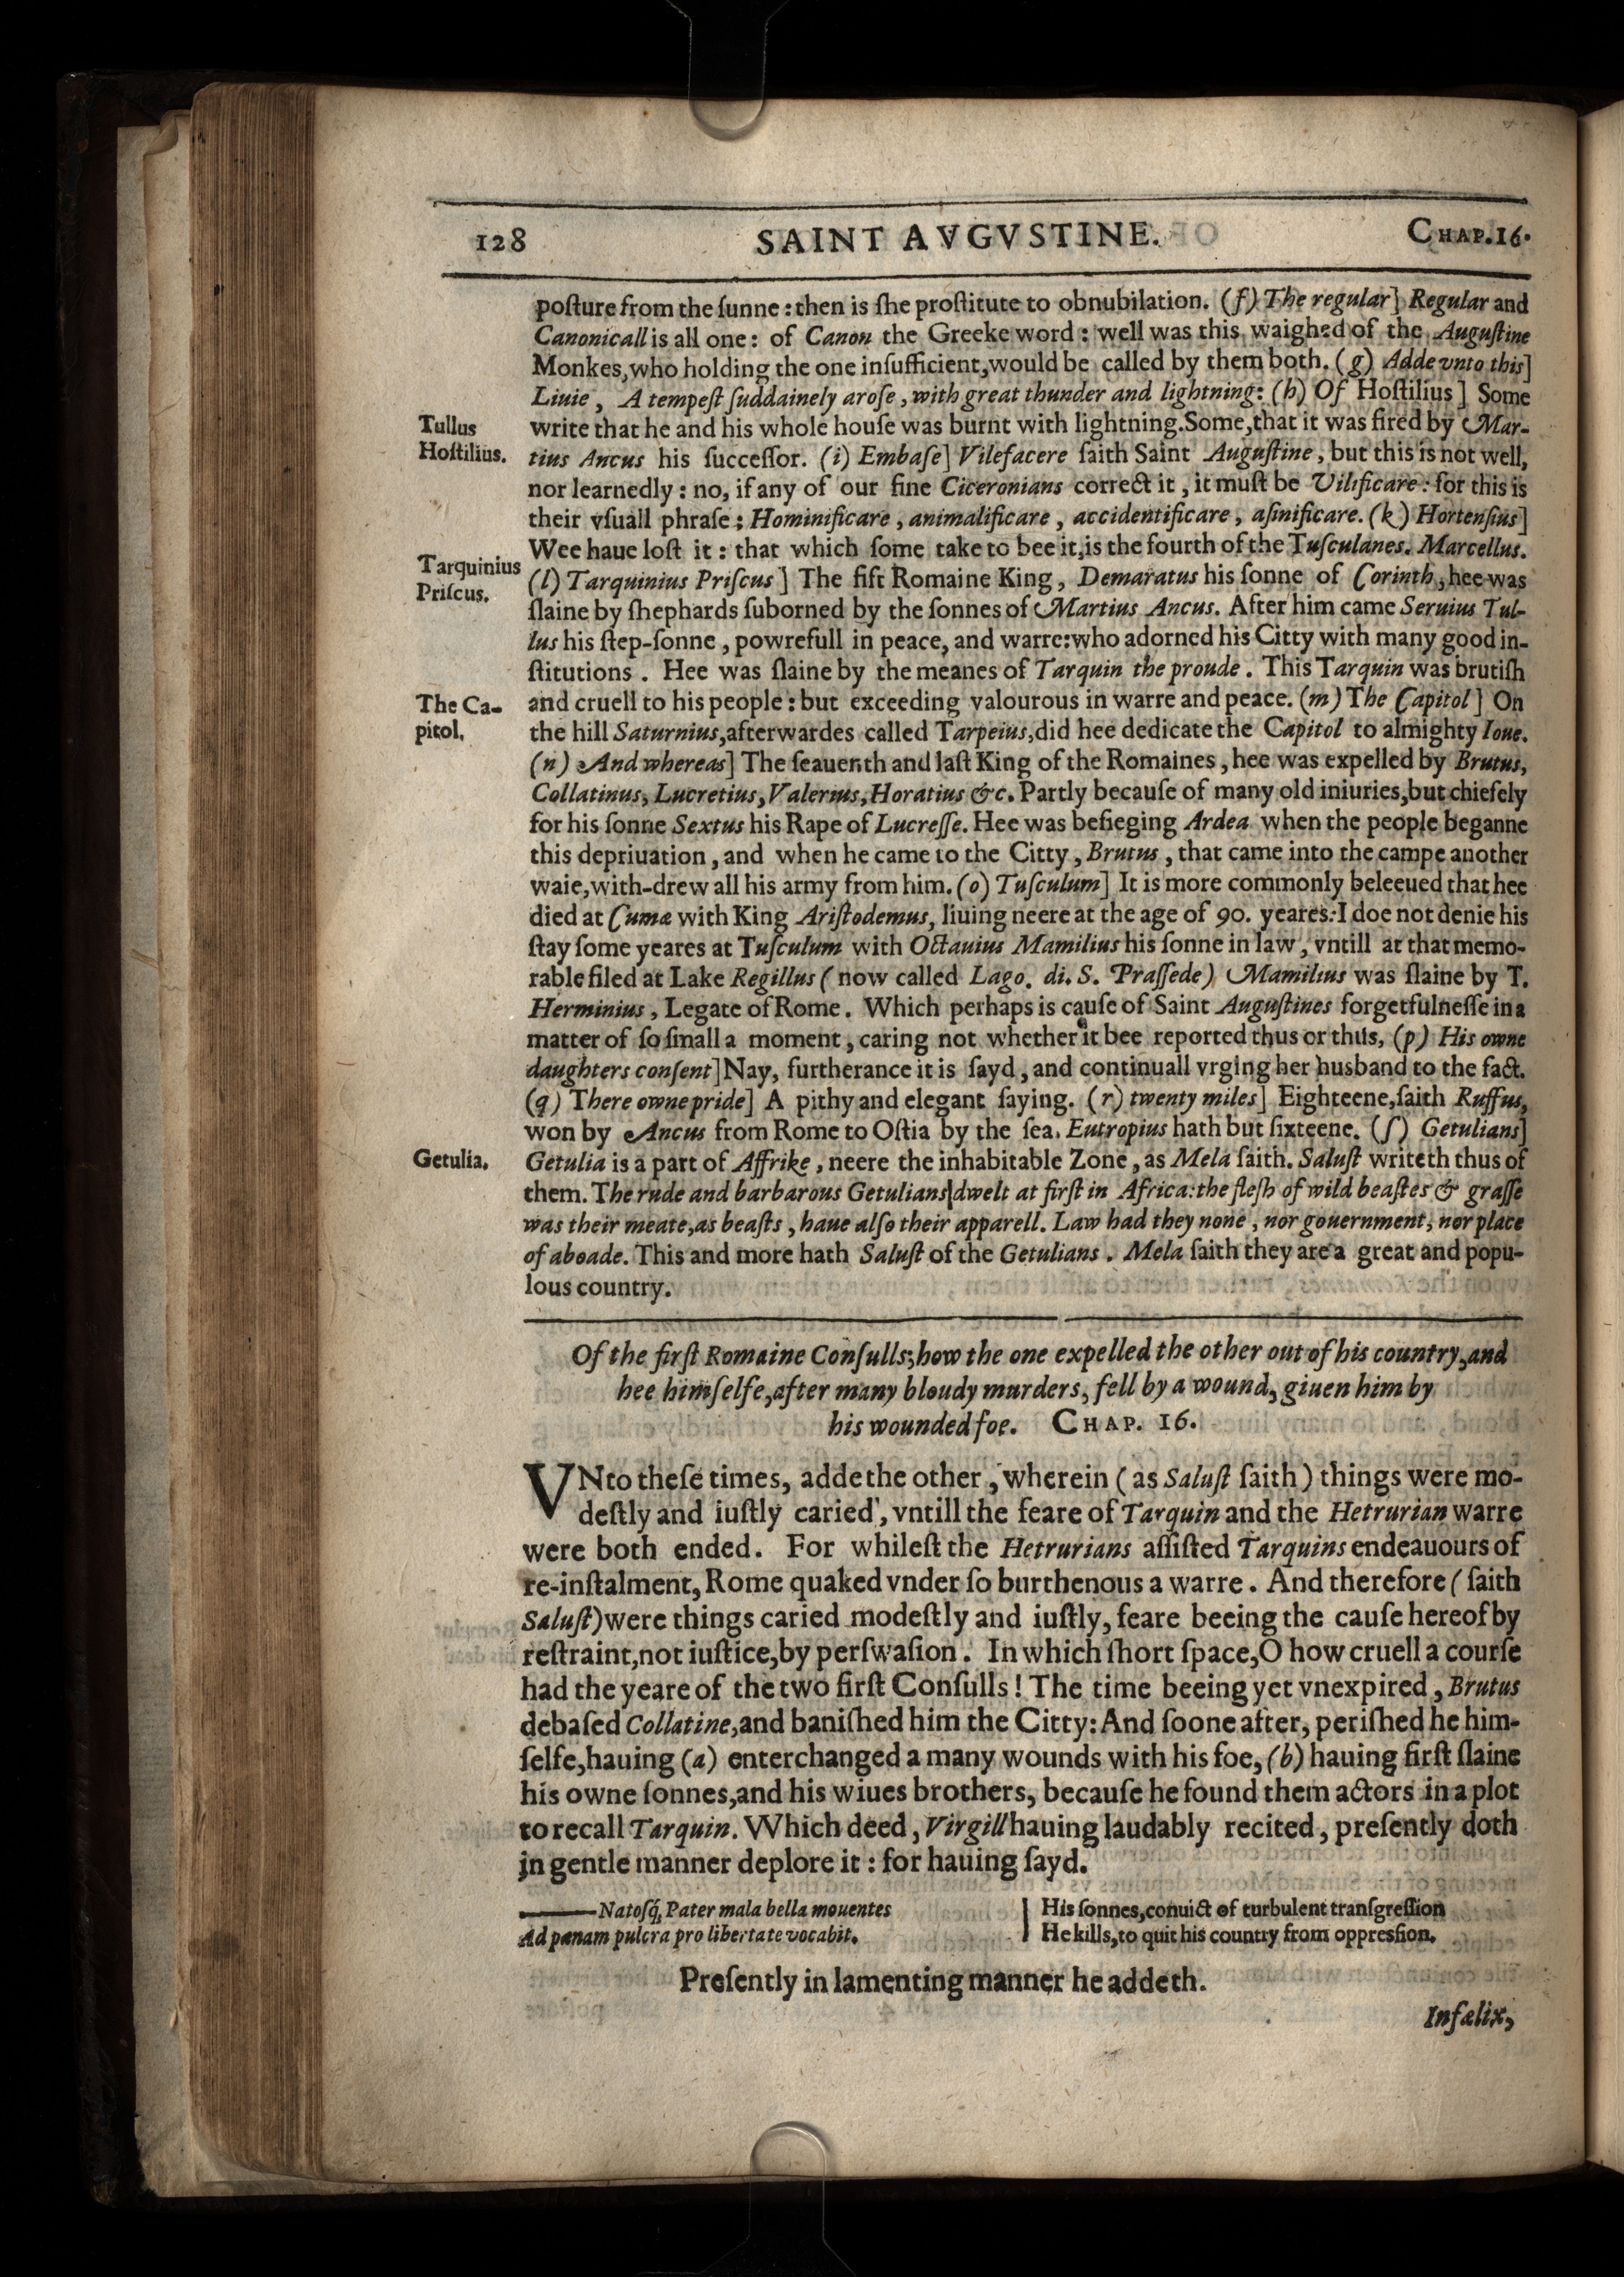 128 SAINT AVGVSTINE. CHAP.16.
poſture from the ſunne: then is ſhe proſtitute to obnubilation. (f) The regular] Regular and
Canonicall is all one: of Canon the Greeke word: well was this waighed of the Auguſtine
Monkes, who holding the one inſufficient, would be called by them both. (g) Adde vnto this]
Liuie, A tempeſt ſuddainely aroſe, with great thunder and lightning: (h) Of Hoſtilius] Some
Tullus
Hoſtilius.
write that he and his whole houſe was burnt with lightning. Some, that it was fired by Mar-
tius Ancus his ſucceſſor. (i) Embaſe] Vilefacere ſaith Saint Auguſtine, but this is not well,
nor learnedly: no, if any of our fine Ciceronians correct it, it muſt be Vilificare: for this is
their vſuall phraſe; Hominificare, animalificare, accidentificare, aſinificare. (k) Hortenſius]
Wee haue loſt it: that which ſome take to bee it, is the fourth of the Tuſculanes. Marcellus.
Tarquinius
Priſcus.
(l) Tarquinius Priſcus] The fift Romaine King, Demaratus his ſonne of Corinth, hee was
ſlaine by ſhephards ſuborned by the ſonnes of Martius Ancus. After him came Seruius Tul-
lus his ſtep-ſonne, powrefull in peace, and warre: who adorned his Citty with many good in-
ſtitutions. Hee was ſlaine by the meanes of Tarquin the proude. This Tarquin was brutiſh
The Ca-
pitol.
and cruell to his people: but exceeding valourous in warre and peace. (m) The Capitol] On
the hill Saturnius, afterwardes called Tarpeius, did hee dedicate the Capitol to almighty Ioue.
(n) And whereas] The ſeauenth and laſt King of the Romaines, hee was expelled by Brutus,
Collatinus, Lucretius, Valerius, Horatius &c. Partly becauſe of many old iniuries, but chiefely
for his ſonne Sextus his Rape of Lucreſſe. Hee was beſieging Ardea when the people beganne
this depriuation, and when he came to the Citty, Brutus, that came into the campe another
waie, with-drew all his army from him. (o) Tuſculum] It is more commonly beleeued that hee
died at Cumæ with King Ariſtodemus, liuing neere at the age of 90. yeares: I doe not denie his
ſtay ſome yeares at Tuſculum with Octauius Mamilius his ſonne in law, vntill at that memo-
rable filed at Lake Regillus (now called Lago. di. S. Praſſede) Mamilius was ſlaine by T.
Herminius, Legate of Rome. Which perhaps is cauſe of Saint Auguſtines forgetfulneſſe in a
matter of ſo ſmall a moment, caring not whether it bee reported thus or thus, (p) His owne
daughters conſent] Nay, furtherance it is ſayd, and continuall vrging her husband to the fact.
(q) There owne pride] A pithy and elegant ſaying. (r) twenty miles] Eighteene, ſaith Ruffus,
won by Ancus from Rome to Oſtia by the ſea. Eutropius hath but ſixteene. (ſ) Getulians]
Getulia.
Getulia is a part of Affrike, neere the inhabitable Zone, as Mela ſaith. Saluſt writeth thus of
them. The rude and barbarous Getulians dwelt at firſt in Africa: the fleſh of wild beaſtes & graſſe
was their meate, as beaſts, haue alſo their apparell. Law had they none, nor gouernment, nor place
of aboade. This and more hath Saluſt of the Getulians. Mela ſaith they are a great and popu-
lous country.
Of the firſt Romaine Conſulls; how the one expelled the other out of his country, and
hee himſelfe, after many bloudy murders, fell by a wound, giuen him by
his wounded foe. CHAP. 16.
VNto theſe times, adde the other, wherein (as Saluſt ſaith) things were mo-
deſtly and iuſtly caried, vntill the feare of Tarquin and the Hetrurian warre
were both ended. For whileſt the Hetrurians aſſiſted Tarquins endeauours of
re-inſtalment, Rome quaked vnder ſo burthenous a warre. And therefore (ſaith
Saluſt) were things caried modeſtly and iuſtly, feare beeing the cauſe hereof by
reſtraint, not iuſtice, by perſwaſion. In which ſhort ſpace, O how cruell a courſe
had the yeare of the two firſt Conſulls! The time beeing yet vnexpired, Brutus
debaſed Collatine, and baniſhed him the Citty: And ſoone after, periſhed he him-
ſelfe, hauing (a) enterchanged a many wounds with his foe, (b) hauing firſt ſlaine
his owne ſonnes, and his wiues brothers, becauſe he found them actors in a plot
to recall Tarquin. Which deed, Virgill hauing laudably recited, preſently doth
in gentle manner deplore it: for hauing ſayd.
——Natoſq́; Pater mala bella mouentes
Ad pœnam pulcra pro libertate vocabit.
His ſonnes, conuict of turbulent tranſgreſſion
He kills, to quit his country from oppreſsion.
Preſently in lamenting manner he addeth.
Infælix,